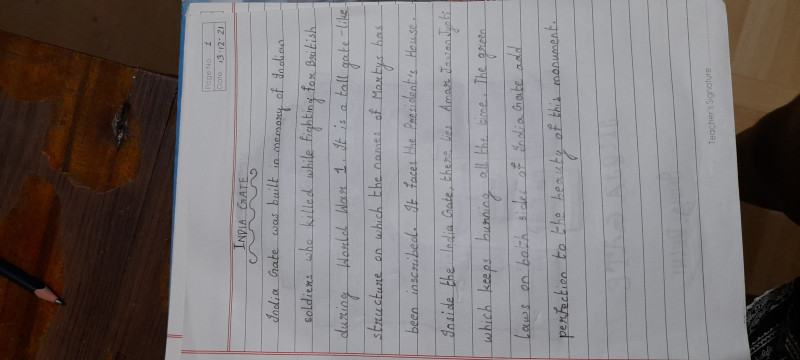 Page No. 1
Date 13·12·21
INDIA GATE
India Gate was built in memory of Indian
soldiers who killed while fighting for British
during World War 1. It is a tall gate-like
structure on which the names of Martys has
been inscribed. It faces the President's House.
Inside the India Gate, there lies Amar Jawan Jyoti
which keeps burning all the time. The green
laws on both sides of India Gate add
perfection to the beauty of this monument.
Teacher's Signature